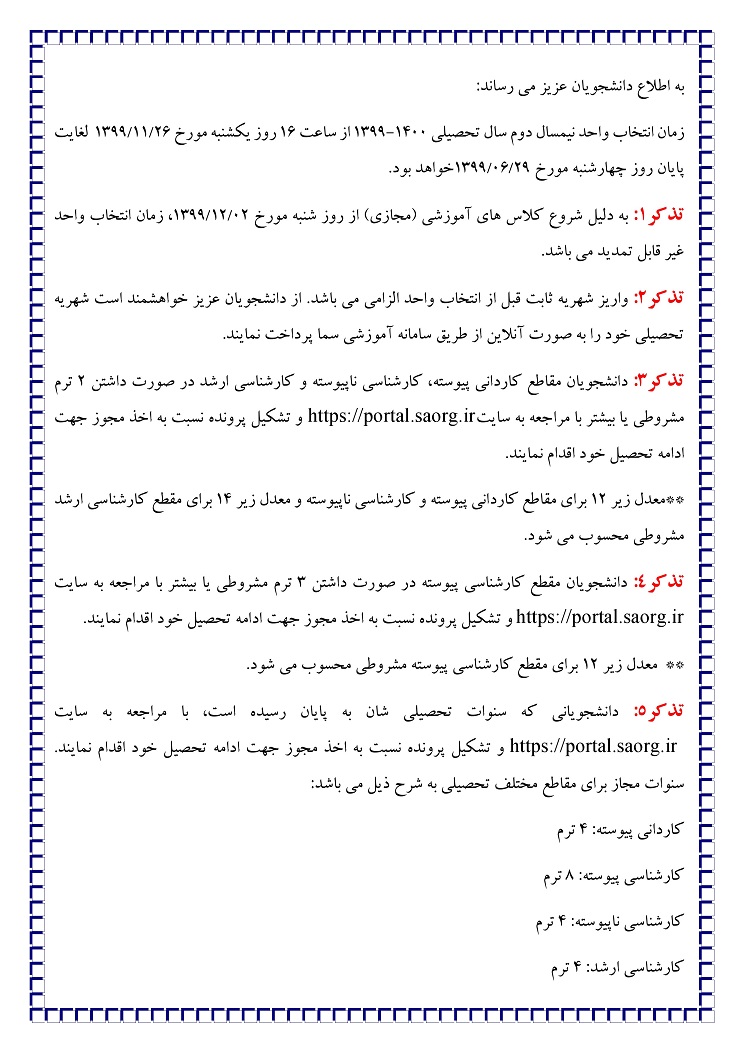 به اطلاع دانشجویان عزیز می رساند:
زمان انتخاب واحد نیمسال دوم سال تحصیلی ۱۴۰۰-۱۳۹۹ از ساعت ۱۶ روز یکشنبه مورخ ۱۳۹۹/۱۱/۲۶ لغایت
پایان روز چهارشنبه مورخ ۱۳۹۹/۰۶/۲۹خواهد بود.
تذکر۱: به دلیل شروع کلاس های آموزشی (مجازی) از روز شنبه مورخ ۱۳۹۹/۱۲/۰۲، زمان انتخاب واحد
غیر قابل تمدید می باشد.
تذکر۲: واریز شهریه ثابت قبل از انتخاب واحد الزامی می باشد. از دانشجویان عزیز خواهشمند است شهریه
تحصیلی خود را به صورت آنلاین از طریق سامانه آموزشی سما پرداخت نمایند.
تذکر۳: دانشجویان مقاطع کاردانی پیوسته، کارشناسی ناپیوسته و کارشناسی ارشد در صورت داشتن ۲ ترم
مشروطی یا بیشتر با مراجعه به سایتhttps://portal.saorg.ir و تشکیل پرونده نسبت به اخذ مجوز جهت
ادامه تحصیل خود اقدام نمایند.
**معدل زیر ۱۲ برای مقاطع کاردانی پیوسته و کارشناسی ناپیوسته و معدل زیر ۱۴ برای مقطع کارشناسی ارشد
مشروطی محسوب می شود.
تذکر٤: دانشجویان مقطع کارشناسی پیوسته در صورت داشتن ۳ ترم مشروطی یا بیشتر با مراجعه به سایت
https://portal.saorg.ir و تشکیل پرونده نسبت به اخذ مجوز جهت ادامه تحصیل خود اقدام نمایند.
** معدل زیر ۱۲ برای مقطع کارشناسی پیوسته مشروطی محسوب می شود.
تذکر۵: دانشجویانی که سنوات تحصیلی شان به پایان رسیده است، با مراجعه به سایت
https://portal.saorg.ir و تشکیل پرونده نسبت به اخذ مجوز جهت ادامه تحصیل خود اقدام نمایند.
سنوات مجاز برای مقاطع مختلف تحصیلی به شرح ذیل می باشد:
کاردانی پیوسته: ۴ ترم
کارشناسی پیوسته: ۸ ترم
کارشناسی ناپیوسته: ۴ ترم
کارشناسی ارشد: ۴ ترم